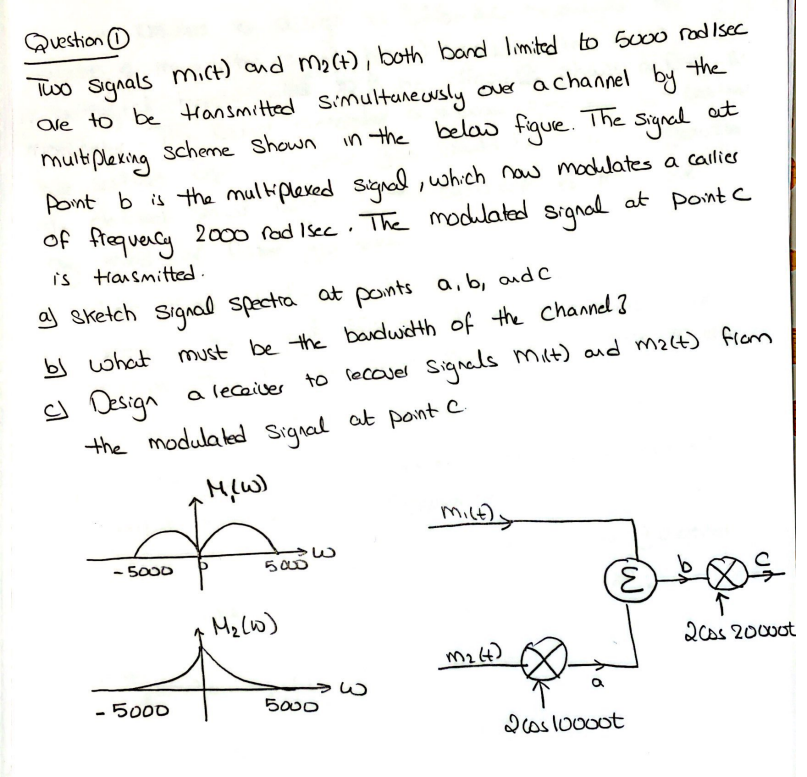 Question ①
Two signals m₁(t) and m₂(t), both band limited to 5000 rad/sec
are to be transmitted simultaneously over a channel by the
multiplexing scheme shown in the below figure. The signal at
Point b is the multiplexed signal, which now modulates a carrier
of frequency 2000 rad/sec. The modulated signal at point C
is transmitted.
a) Sketch signal spectra at points a, b, and C
b) what must be the bandwidth of the channel?
c) Design a receiver to recover signals m₁(t) and m₂(t) from
the modulated signal at point C.
M₁(ω)
-5000
0
5000
ω
M₂(ω)
-5000
5000
ω
m₁(t)
Σ
b
c
2cos 20000t
m₂(t)
a
2cos10000t